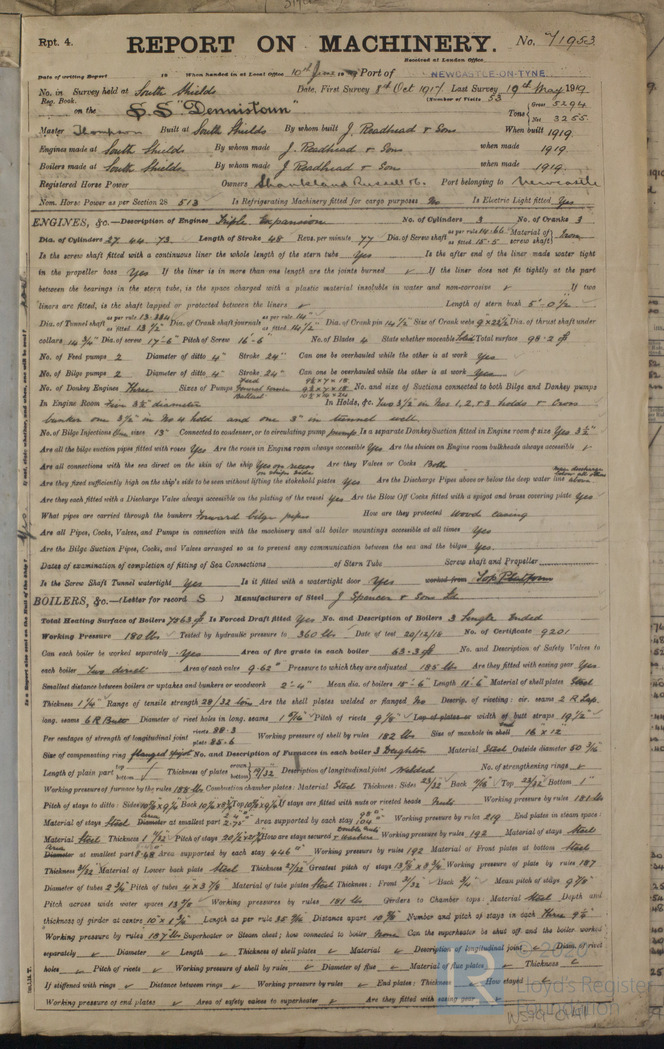 Rpt. 4. REPORT ON MACHINERY. No. 71953
Received at London Office
Date of writing Report 19 When handed in at Local Office 10th June 19 Port of NEWCASTLE-ON-TYNE.
No. in Survey held at South Shields Date, First Survey 8th Oct 1917 Last Survey 19th May 1919
Reg. Book. (Number of Visits 53
on the S.S. "Dennistoun" Tons { Gross 5294 Net 3255
Master Thompson Built at South Shields By whom built J. Readhead & Sons When built 1919.
Engines made at South Shields By whom made J. Readhead & Sons when made 1919.
Boilers made at South Shields By whom made J Readhead & Sons when made 1919.
Registered Horse Power Owners Port belonging to Newcastle
Nom. Horse Power as per Section 28 513 Is Refrigerating Machinery fitted for cargo purposes No Is Electric Light fitted Yes
ENGINES, &c.—Description of Engines Triple Expansion No. of Cylinders 3 No. of Cranks 3
Dia. of Cylinders 27 44 73 Length of Stroke 48 Revs. per minute 77 Dia. of Screw shaft as per rule 14.66 as fitted 15.5 Material of screw shaft Iron
Is the screw shaft fitted with a continuous liner the whole length of the stern tube Yes Is the after end of the liner made water tight
in the propeller boss Yes If the liner is in more than one length are the joints burned ✓ If the liner does not fit tightly at the part
between the bearings in the stern tube, is the space charged with a plastic material insoluble in water and non-corrosive ✓ If two
liners are fitted, is the shaft lapped or protected between the liners ✓ Length of stern bush 5'-0½"
Dia. of Tunnel shaft as per rule 13.32 as fitted 13½" Dia. of Crank shaft journals as per rule 14" as fitted 14½" Dia. of Crank pin 14½" Size of Crank webs 9"x22½" Dia. of thrust shaft under
collars 14¾" Dia. of screw 17'-6" Pitch of Screw 16'-6" No. of Blades 4 State whether moveable Solid Total surface 98.2
No. of Feed pumps 2 Diameter of ditto 4" Stroke 24" Can one be overhauled while the other is at work Yes
No. of Bilge pumps 2 Diameter of ditto 4" Stroke 24" Can one be overhauled while the other is at work Yes
No. of Donkey Engines Three Sizes of Pumps No. and size of Suctions connected to both Bilge and Donkey pumps
In Engine Room Five 3½" diameter In Holds, &c. Two 3½" in Nos 1, 2, & 3 holds & Cross
bunker one 3½" in No 4 hold and one 3" in tunnel well
No. of Bilge Injections One sizes 13" Connected to condenser, or to circulating pump pump Is a separate Donkey Suction fitted in Engine room & size Yes 3½"
Are all the bilge suction pipes fitted with roses Yes Are the roses in Engine room always accessible Yes Are the sluices on Engine room bulkheads always accessible ✓
Are all connections with the sea direct on the skin of the ship Yes Are they Valves or Cocks Both
Are they fixed sufficiently high on the ship's side to be seen without lifting the stokehold plates Yes Are the Discharge Pipes above or below the deep water line above
Are they each fitted with a Discharge Valve always accessible on the plating of the vessel Yes Are the Blow Off Cocks fitted with a spigot and brass covering plate Yes
What pipes are carried through the bunkers Forward bilge pipes How are they protected Wood casing
Are all Pipes, Cocks, Valves, and Pumps in connection with the machinery and all boiler mountings accessible at all times Yes
Are the Bilge Suction Pipes, Cocks, and Valves arranged so as to prevent any communication between the sea and the bilges Yes
Dates of examination of completion of fitting of Sea Connections of Stern Tube Screw shaft and Propeller
Is the Screw Shaft Tunnel watertight Yes Is it fitted with a watertight door Yes worked from Top Platform
BOILERS, &c.—(Letter for record S) Manufacturers of Steel J Spencer & Sons Ltd
Total Heating Surface of Boilers 7863 Is Forced Draft fitted Yes No. and Description of Boilers 3 Single Ended
Working Pressure 180 lbs Tested by hydraulic pressure to 360 lbs Date of test 20/12/18 No. of Certificate 9201
Can each boiler be worked separately Yes Area of fire grate in each boiler 63.3 No. and Description of Safety Valves to
each boiler Two direct Area of each valve 9.62" Pressure to which they are adjusted 185 lbs Are they fitted with easing gear Yes
Smallest distance between boilers or uptakes and bunkers or woodwork 2'-4" Mean dia. of boilers 15'-6" Length 11'-6" Material of shell plates Steel
Thickness 1¼" Range of tensile strength 28/32 tons Are the shell plates welded or flanged No Descrip. of riveting: cir. seams 2 R Lap
long. seams 6 R Butt Diameter of rivet holes in long. seams Pitch of rivets Lap of plates or width of butt straps 19½"
Per centages of strength of longitudinal joint rivets 88.3 plate 85.6 Working pressure of shell by rules 182 lbs Size of manhole in shell 16 x 12
Size of compensating ring flanged No. and Description of Furnaces in each boiler 3 Deighton Material Steel Outside diameter
Length of plain part top bottom Thickness of plates crown bottom 19/32 Description of longitudinal joint Welded No. of strengthening rings ✓
Working pressure of furnace by the rules 188 lbs Combustion chamber plates: Material Steel Thickness: Sides 23/32 Back 11/16 Top 23/32 Bottom 1"
Pitch of stays to ditto: Sides Back Top If stays are fitted with nuts or riveted heads Nuts Working pressure by rules 181 lbs
Material of stays Steel Diameter at smallest part Area supported by each stay Working pressure by rules 219 End plates in steam space:
Material Steel Thickness 1 Pitch of stays How are stays secured Double nuts & washers Working pressure by rules 192 Material of stays Steel
Diameter at smallest part 8.48 Area supported by each stay 446 Working pressure by rules 192 Material of Front plates at bottom Steel
Thickness Material of Lower back plate Steel Thickness 27/32 Greatest pitch of stays Working pressure of plate by rules 187
Diameter of tubes 2¾" Pitch of tubes 4 x 3⅞ Material of tube plates Steel Thickness: Front Back ¾" Mean pitch of stays 9⅞"
Pitch across wide water spaces 13⅞ Working pressures by rules 181 lbs Girders to Chamber tops: Material Steel Depth and
thickness of girder at centre Length as per rule Distance apart Number and pitch of stays in each Three
Working pressure by rules 187 lbs Superheater or Steam chest; how connected to boiler None Can the superheater be shut off and the boiler worked
separately ✓ Diameter ✓ Length ✓ Thickness of shell plates ✓ Material ✓ Description of longitudinal joint ✓ Diam. of rivet
holes ✓ Pitch of rivets ✓ Working pressure of shell by rules ✓ Diameter of flue ✓ Material of flue plates ✓ Thickness ✓
If stiffened with rings ✓ Distance between rings ✓ Working pressure by rules ✓ End plates: Thickness ✓ How stayed ✓
Working pressure of end plates ✓ Area of safety valves to superheater ✓ Are they fitted with easing gear ✓
© 2020
Lloyd's Register
Foundation